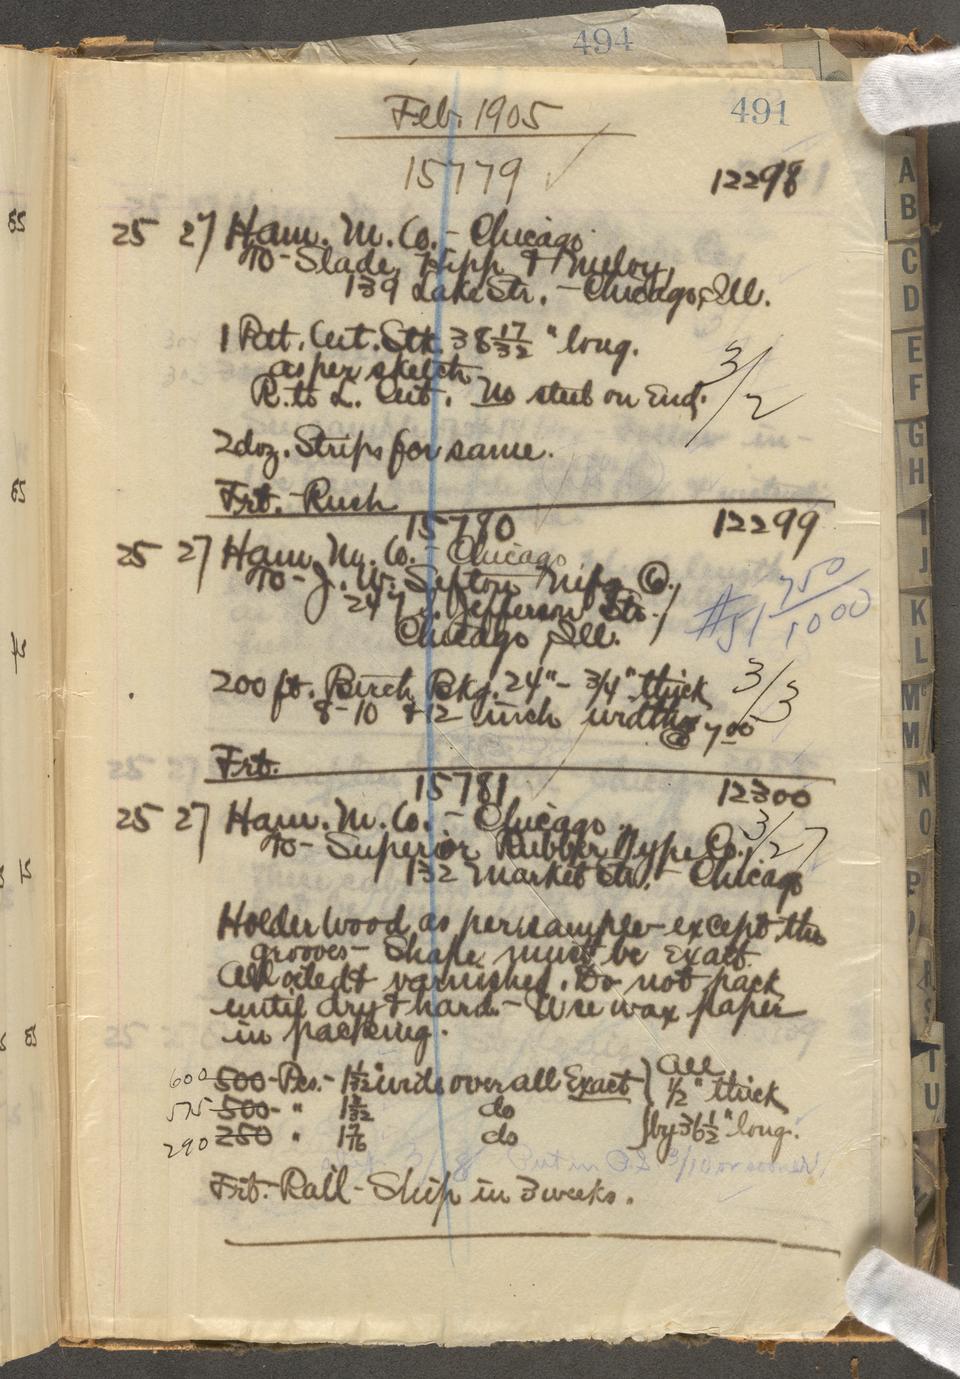 494
Feb. 1905
491
15779
12298
25 27 Ham. M. Co. - Chicago
To - Slade, Hipp & Meloy,
139 Lake Str. - Chicago, Ill.
1 Patt. Cut. Stk. 38 17/32 " long.
as per sketch
R. to L. Cut. No steel on End.
3/2
2 doz. Strips for same.
Frt. - Rush
15780
12299
25 27 Ham. M. Co. - Chicago
To - J. W. Sefton Mnfg Co.
247 S. Jefferson Str.
Chicago, Ill.
#51 750/1000
200 ft. Birch Bkg. 24" - 3/4" thick
8-10 & 12 inch widths
@ 7.00
3/3
Frt.
15781
12300
25 27 Ham. M. Co. - Chicago
To - Superior Rubber Type Co.
3/27
132 Market Str. - Chicago
Holder Wood as per sample - except the
grooves - Shape must be exact
All oiled & varnished. Do not pack
until dry & hard. - Use wax paper
in packing.
600 500 - Pcs. - 1 1/32" wide over all Exact } All
575 500 - " 1 3/32 do 1/2" thick
290 250 " 1 7/16 do } by 36 1/2" long.
Frt. Rall - Ship in 3 weeks.
55
65
75
A
B
C
D
E
F
G
H
I
J
K
L
Mc
M
N
O
P
R
S
T
U